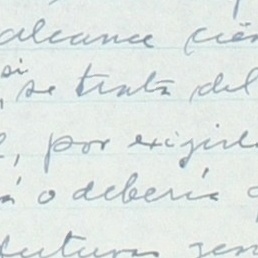 alcance cien
si
, se trata del
, por exigirl
á o debería
futuras gen